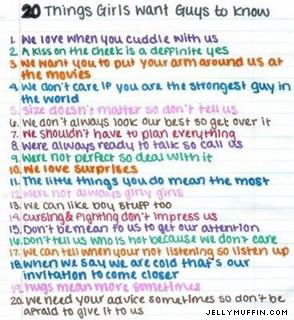 20 Things Girls Want Guys to know
1. We love when you cuddle with us
2. A kiss on the cheek is a deffinite yes
3. We want you to put your arm around us at
the movies
4. We don't care if you are the strongest guy in
the world
5. Size doesn't matter so don't tell us
6. We don't always look our best so get over it
7. We shouldn't have to plan everything
8. Were always ready to talk so call us
9. Were not perfect so deal with it
10. We love surprises
11. The little things you do mean the most
12. Were not always girly girls
13. We can like boy stuff too
14. Cursing & fighting don't impress us
15. Don't be mean to us to get our attention
16. Don't tell us who is hot because we don't care
17. We can tell when your not listening so listen up
18. When we say we are cold that's our
invitation to come closer
19. Hugs mean more sometimes
20. We need your advice sometimes so don't be
afraid to give it to us
JELLYMUFFIN.COM